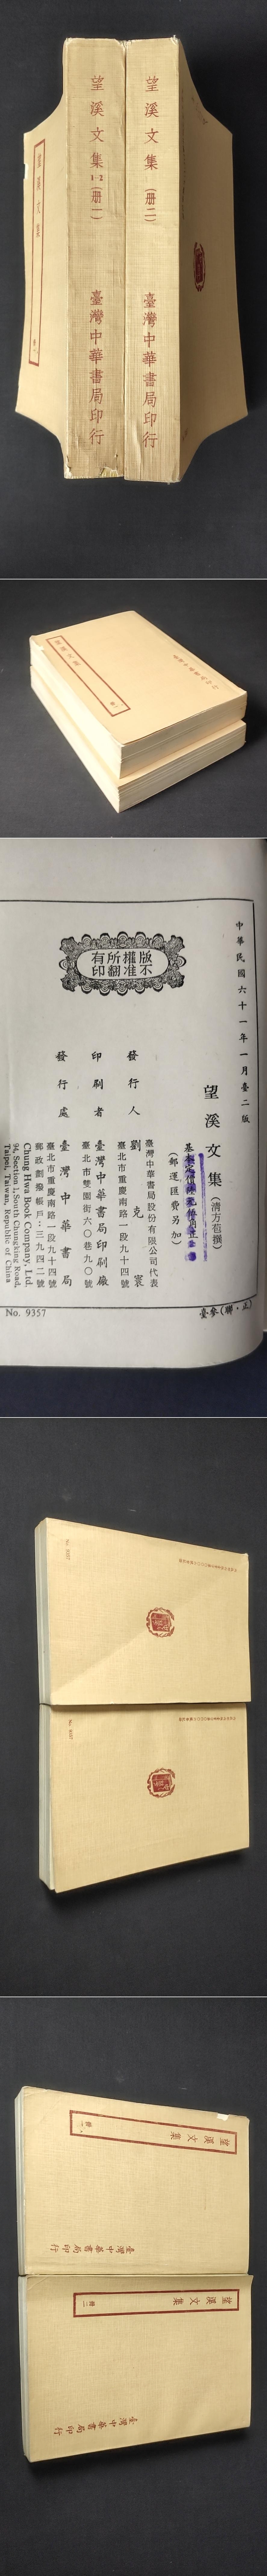 望溪文集1-2(册一)
臺灣中華書局印行
望溪文集(册二)
臺灣中華書局印行
望溪文集
中華民國六十一年一月臺二版
望溪文集(清方苞撰)
(郵運匯費另加)
臺灣中華書局股份有限公司代表
發行人 劉克寰
臺北市重慶南路一段九十四號
印刷者 臺灣中華書局印刷廠
臺北市雙園街六○巷九○號
發行處 臺灣中華書局
臺北市重慶南路一段九十四號
郵政劃撥帳戶:三九四二號
Chung Hwa Book Company, Ltd.
94, Section 1, South Chungking Road,
Taipei, Taiwan, Republic of China
版權所有
不准翻印
No. 9357
臺參(聯·正)
No. 9357
No. 9357
望溪文集
册一
臺灣中華書局印行
望溪文集
册二
臺灣中華書局印行